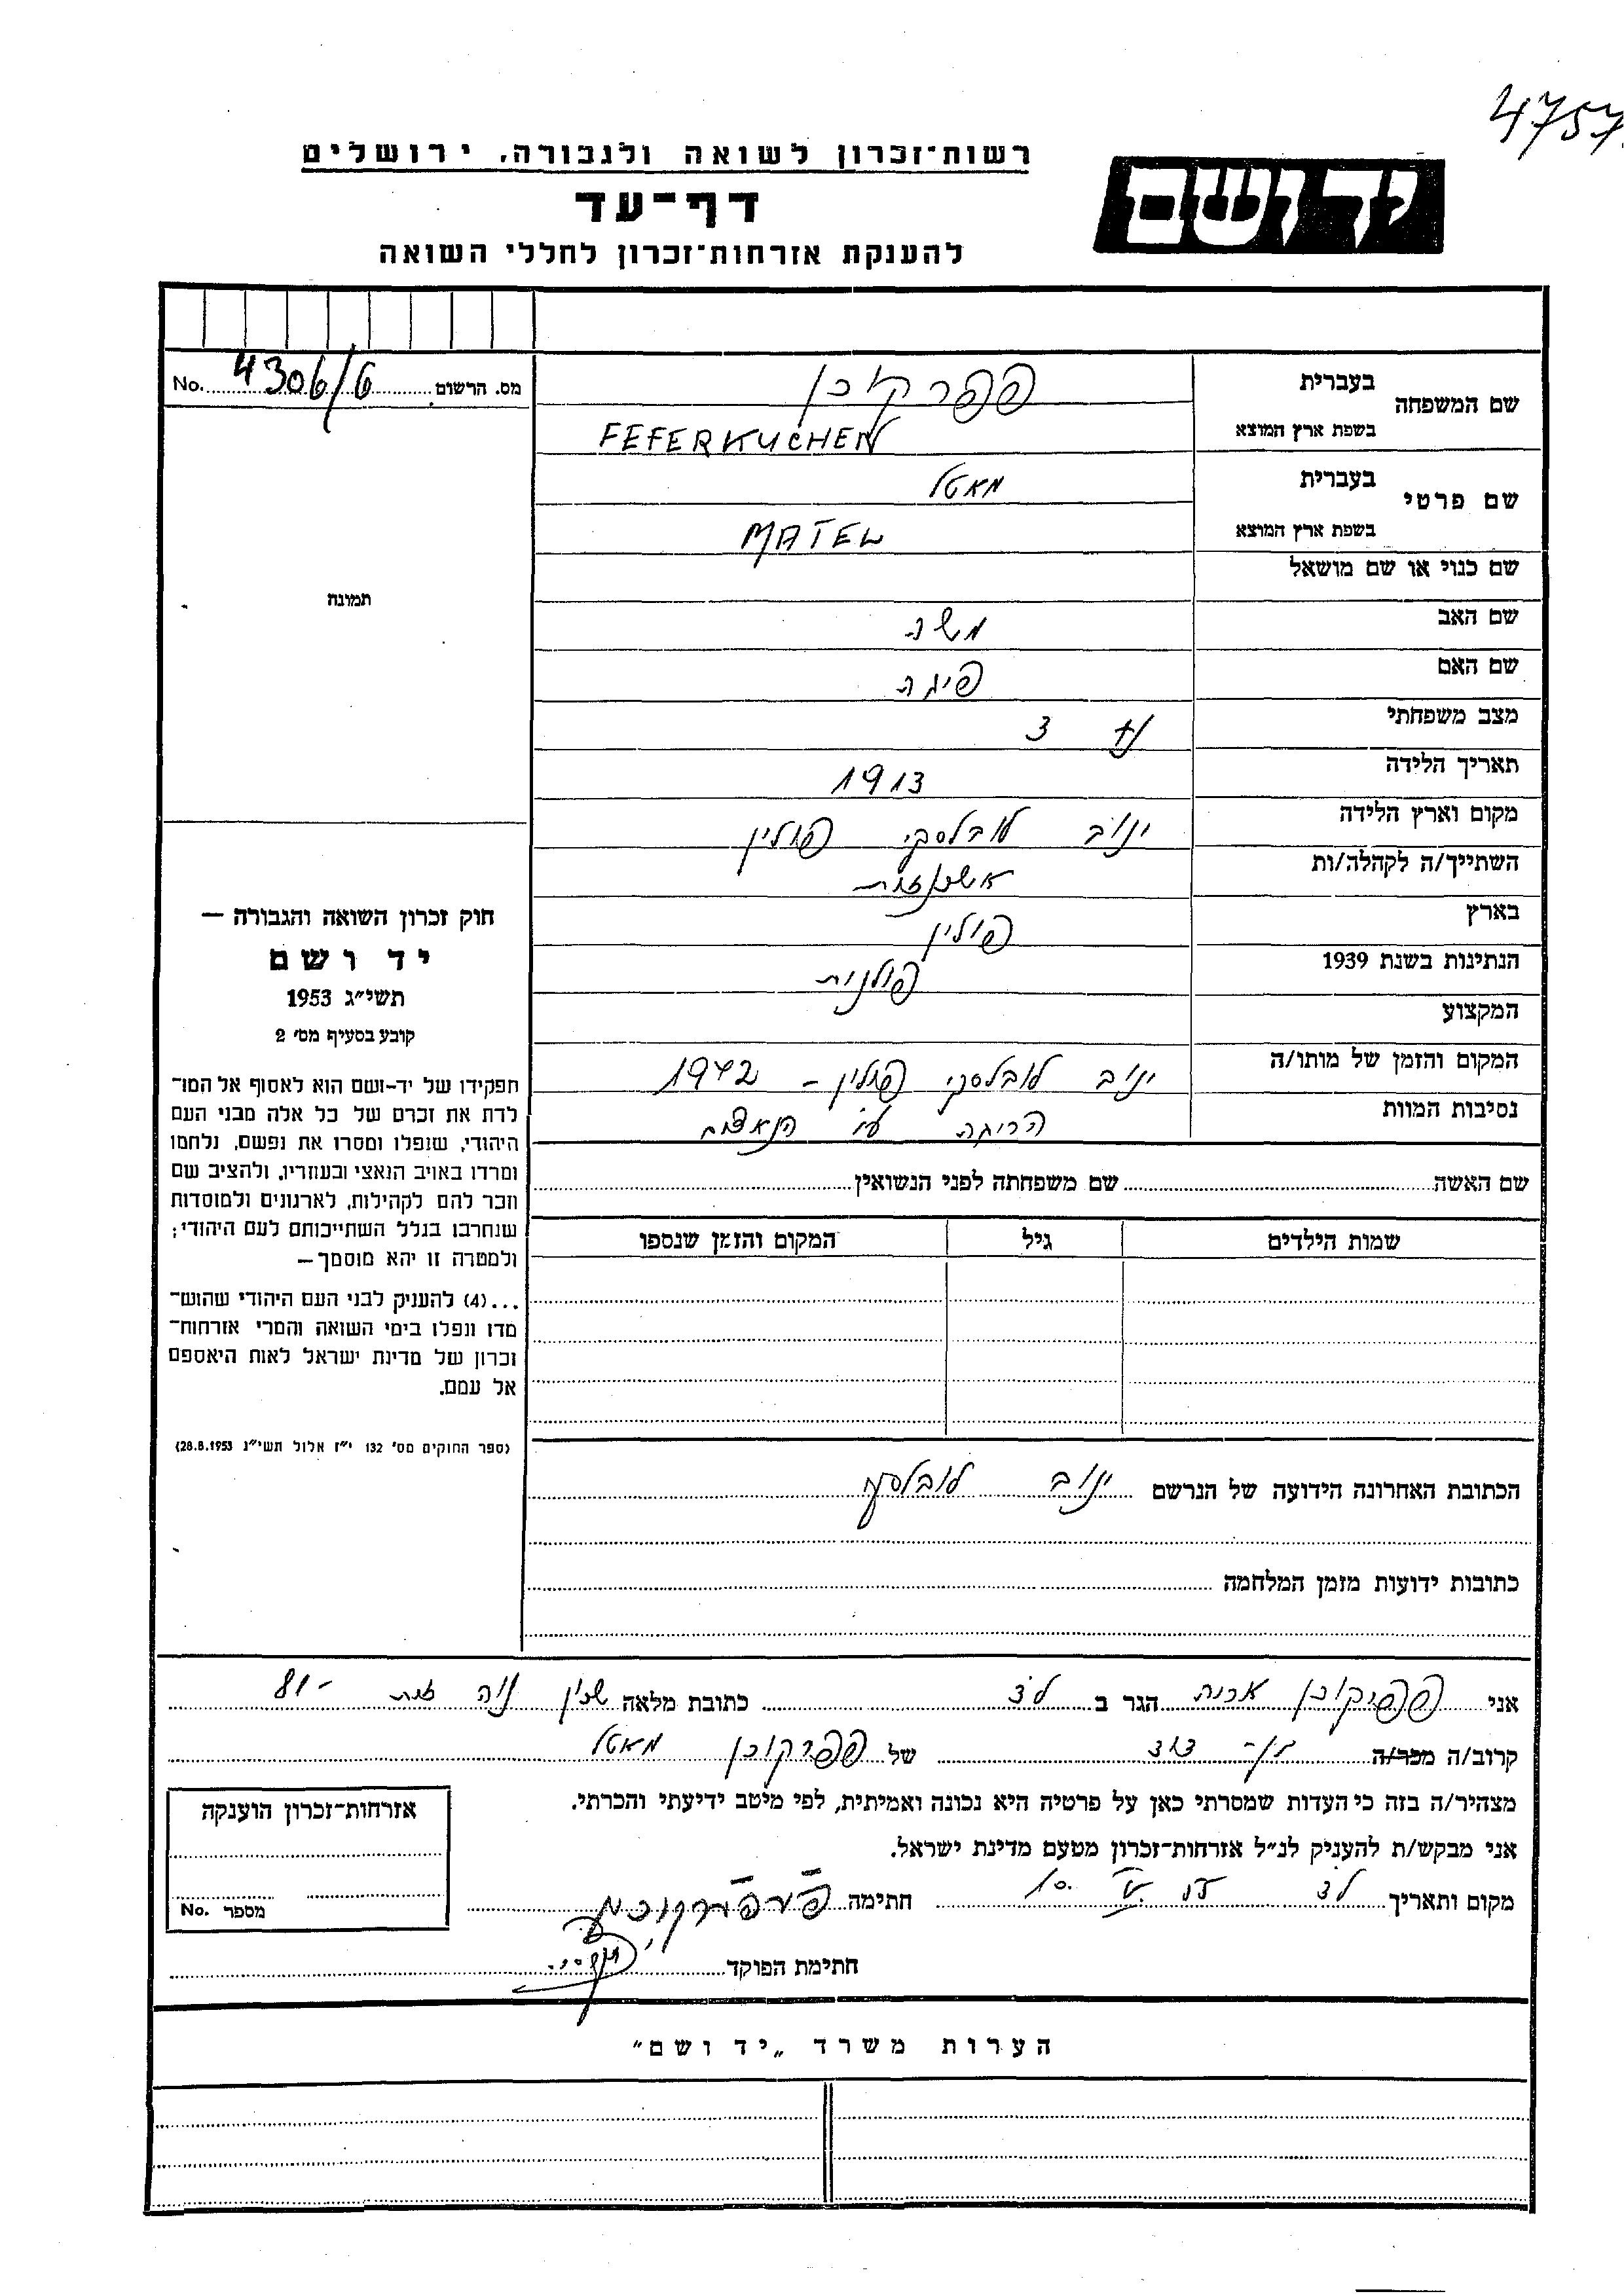 4757
רשות־זכרון לשואה ולגבורה, ירושלים
יד ושם
דף־עד
להענקת אזרחות־זכרון לחללי השואה
מס. הרשום 4306/6 No.
שם המשפחה בעברית פפרקוכן
בשפת ארץ המוצא FEFERKUCHEN
שם פרטי בעברית מאטל
בשפת ארץ המוצא MATEL
שם כנוי או שם מושאל
תמונה
שם האב משה
שם האם פיגה
מצב משפחתי 3
תאריך הלידה 1913
מקום וארץ הלידה ינוב לובלסקי פולין
השתייך/ה לקהלה/ות אשכנזית
בארץ פולין
הנתינות בשנת 1939 פולנית
המקצוע
המקום והזמן של מותו/ה ינוב לובלסקי פולין - 1942
נסיבות המוות הריגה ע״י הנאצים
שם האשה שם משפחתה לפני הנשואין
שמות הילדים גיל המקום והזמן שנספו
חוק זכרון השואה והגבורה —
יד ושם
תשי״ג 1953
קובע בסעיף מס׳ 2
תפקידו של יד-ושם הוא לאסוף אל המו־
לדת את זכרם של כל אלה מבני העם
היהודי, שנפלו ומסרו את נפשם, נלחמו
ומרדו באויב הנאצי ובעוזריו, ולהציב שם
וזכר להם לקהילות, לארגונים ולמוסדות
שנחרבו בגלל השתייכותם לעם היהודי;
ולמטרה זו יהא מוסמך —
...(4) להעניק לבני העם היהודי שהוש־
מדו ונפלו בימי השואה והמרי אזרחות־
זכרון של מדינת ישראל לאות היאספם
אל עמם.
(ספר החוקים מס׳ 132 י״ז אלול תשי״ג 28.8.1953)
הכתובת האחרונה הידועה של הנרשם ינוב לובלסקי
כתובות ידועות מזמן המלחמה
אני פפרקוכן הגר ב כתובת מלאה שכון נוה זית 81-
קרוב/ה מכר/ה של פפרקוכן מאטל
מצהיר/ה בזה כי העדות שמסרתי כאן על פרטיה היא נכונה ואמיתית, לפי מיטב ידיעתי והכרתי.
אני מבקש/ת להעניק לנ״ל אזרחות־זכרון מטעם מדינת ישראל.
מקום ותאריך חתימה
חתימת הפוקד
אזרחות־זכרון הוענקה
מספר No.
הערות משרד „יד ושם״